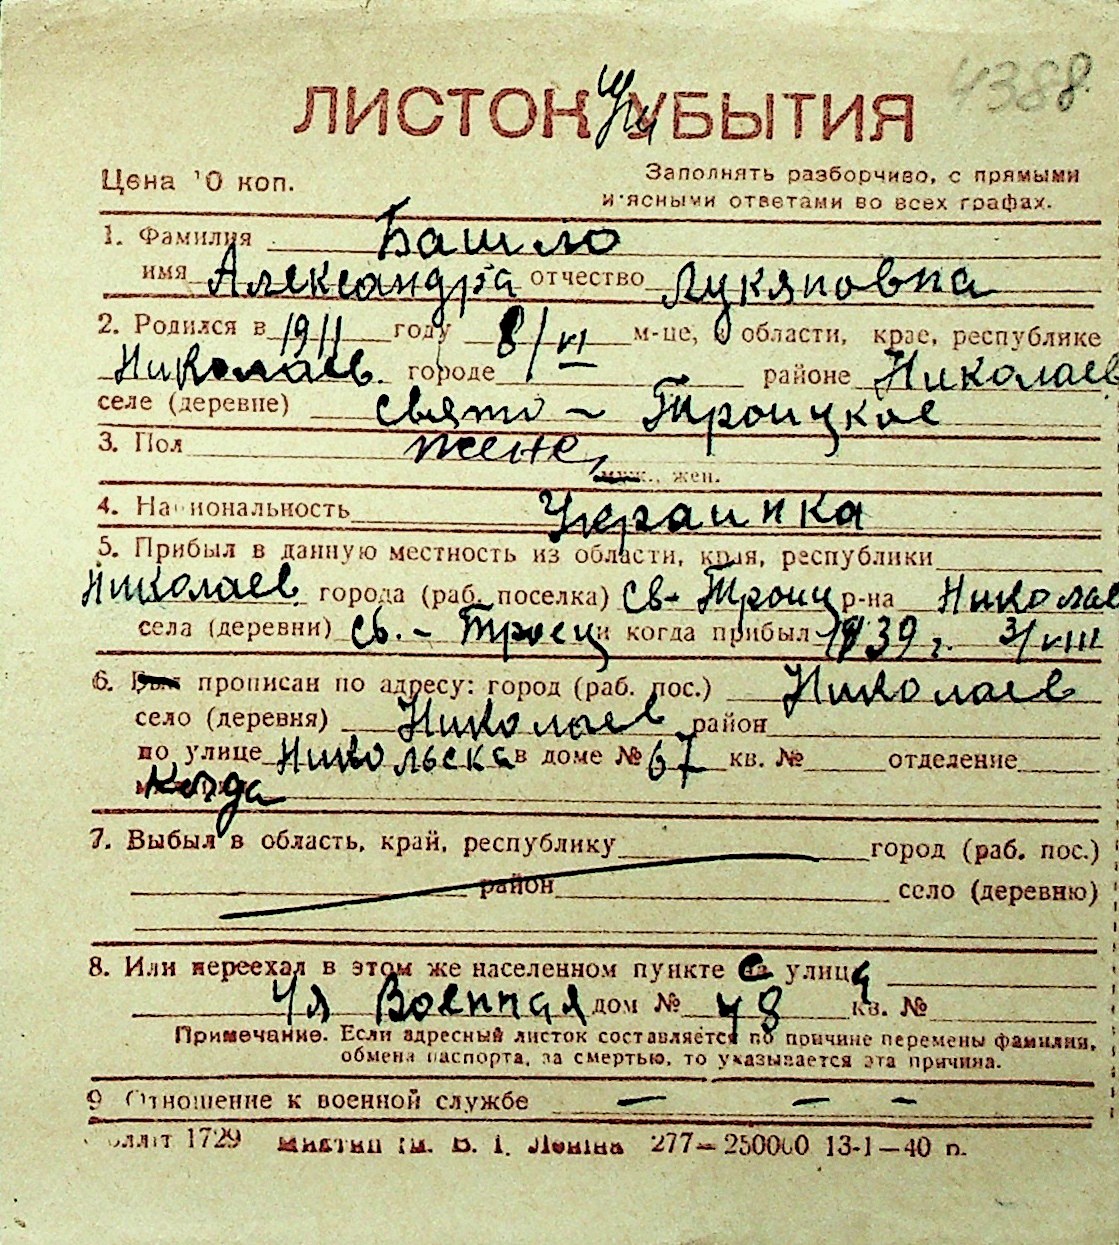 4388
ЛИСТОК УБЫТИЯ
Цена 10 коп.
Заполнять разборчиво, с прямыми
и ясными ответами во всех графах.
1. Фамилия Башло
имя Александра отчество Лукяновна
2. Родился в 1911 году 8/VI м-це, в области, крае, республике
Николаев. городе районе Николаев
селе (деревне) Свято - Троицкое
3. Пол жене,
муж., жен.
4. Национальность Украинка
5. Прибыл в данную местность из области, края, республики
Николаев. города (раб. поселка) Св- Троиц р-на Николаев
села (деревни) Св. - Троец и когда прибыл 1939 г. 3/VIII
6. Был прописан по адресу: город (раб. пос.) Николаев
село (деревня) Николаев район
по улице Никольска в доме № 67 кв. № отделение
когда
7. Выбыл в область, край, республику город (раб. пос.)
район село (деревню)
8. Или переехал в этом же населенном пункте с улица
4я Военная дом № 48 кв. №
Примечание. Если адресный листок составляется по причине перемены фамилии,
обмена паспорта, за смертью, то указывается эта причина.
9 Отношение к военной службе — — —
1729 ім. В. І. Леніна 277—250000 13-1—40 р.